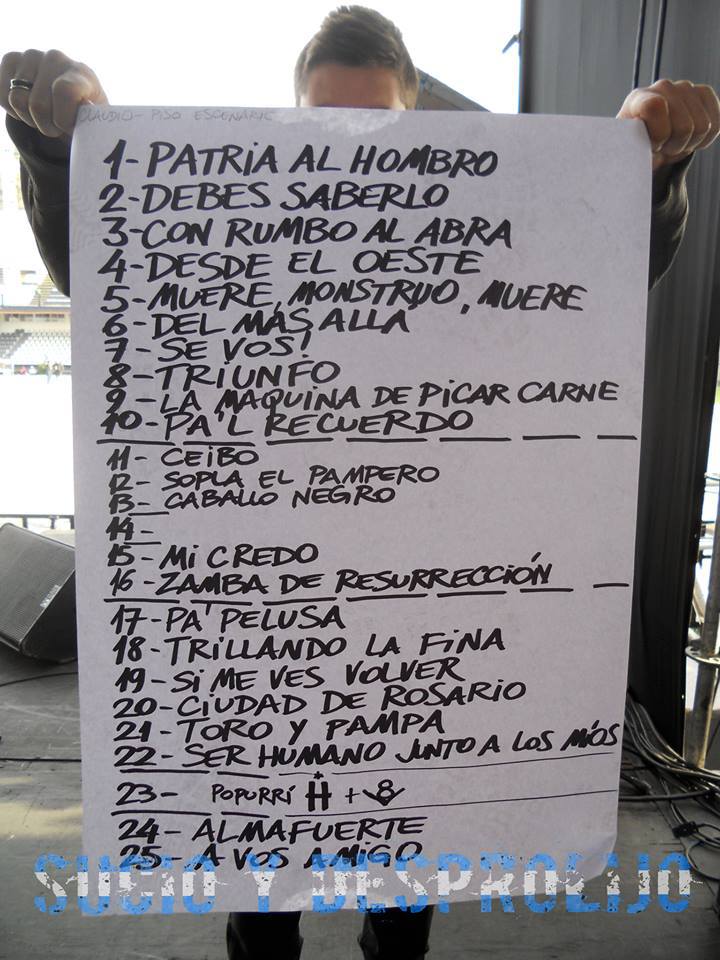 CLAUDIO - PISO ESCENARIO
1- PATRIA AL HOMBRO
2- DEBES SABERLO
3- CON RUMBO AL ABRA
4- DESDE EL OESTE
5- MUERE, MONSTRUO, MUERE
6- DEL MÁS ALLÁ
7- SE VOS!
8- TRIUNFO
9- LA MAQUINA DE PICAR CARNE
10- PA'L RECUERDO
11- CEIBO
12- SOPLA EL PAMPERO
13- CABALLO NEGRO
14-
15- MI CREDO
16- ZAMBA DE RESURRECCIÓN
17- PA' PELUSA
18- TRILLANDO LA FINA
19- SI ME VES VOLVER
20- CIUDAD DE ROSARIO
21- TORO Y PAMPA
22- SER HUMANO JUNTO A LOS MÍOS
23- POPURRÍ H + V8
24- ALMAFUERTE
25- A VOS AMIGO
SUCIO Y DESPROLIJO